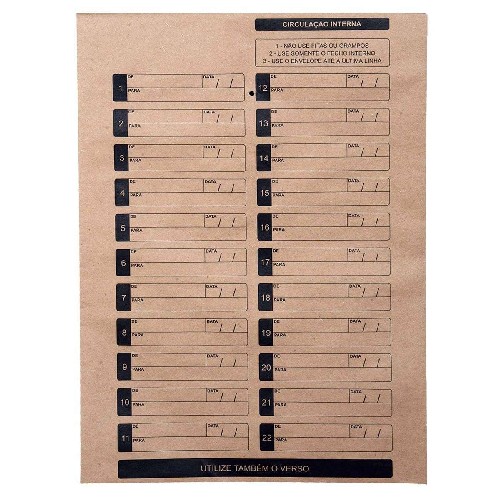 CIRCULAÇÃO INTERNA
1 - NÃO USE FITAS OU GRAMPOS
2 - USE SOMENTE O FECHO INTERNO
3 - USE O ENVELOPE ATÉ A ÚLTIMA LINHA
1 DE DATA / /
PARA
2 DE DATA / /
PARA
3 DE DATA / /
PARA
4 DE DATA / /
PARA
5 DE DATA / /
PARA
6 DE DATA / /
PARA
7 DE DATA / /
PARA
8 DE DATA / /
PARA
9 DE DATA / /
PARA
10 DE DATA / /
PARA
11 DE DATA / /
PARA
12 DE DATA / /
PARA
13 DE DATA / /
PARA
14 DE DATA / /
PARA
15 DE DATA / /
PARA
16 DE DATA / /
PARA
17 DE DATA / /
PARA
18 DE DATA / /
PARA
19 DE DATA / /
PARA
20 DE DATA / /
PARA
21 DE DATA / /
PARA
22 DE DATA / /
PARA
UTILIZE TAMBÉM O VERSO